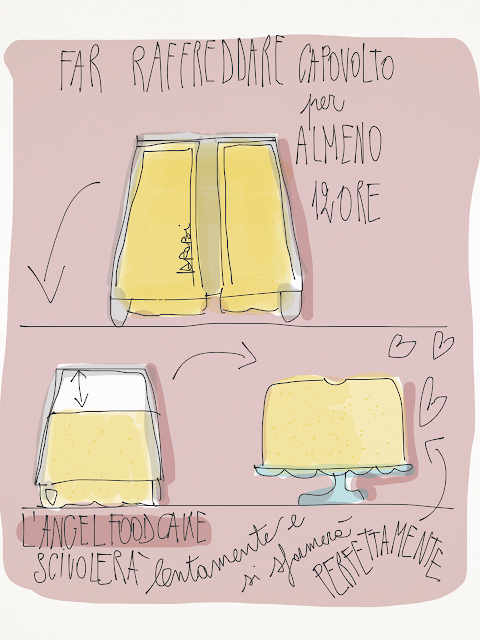 FAR RAFFREDDARE CAPOVOLTO
per
ALMENO
12 ORE
L'ANGEL FOOD CAKE
SCIVOLERÀ lentamente e
si sformerà PERFETTAMENTE